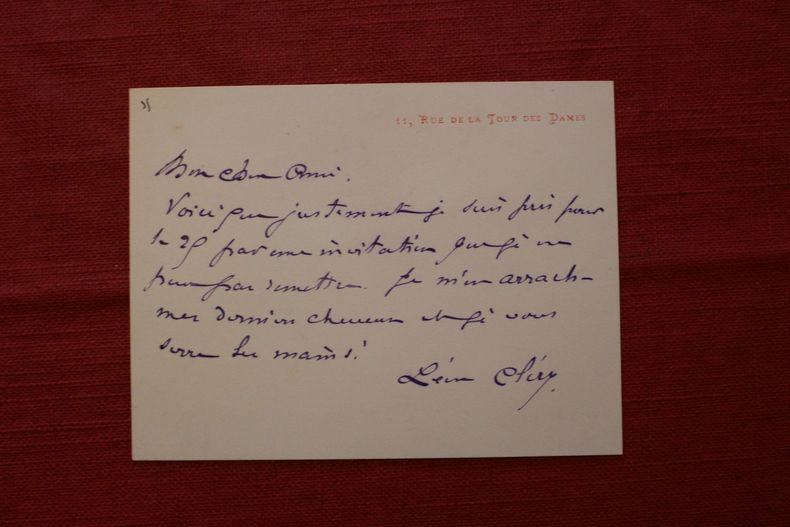 11, RUE DE LA TOUR DES DAMES
Mon cher Ami.
Voici que justement je suis pris pour
le 29 par une invitation que je ne
peux pas remettre. Je m'en arrach
mes derniers cheveux et je vous
serre les mains!
Léon Cléry